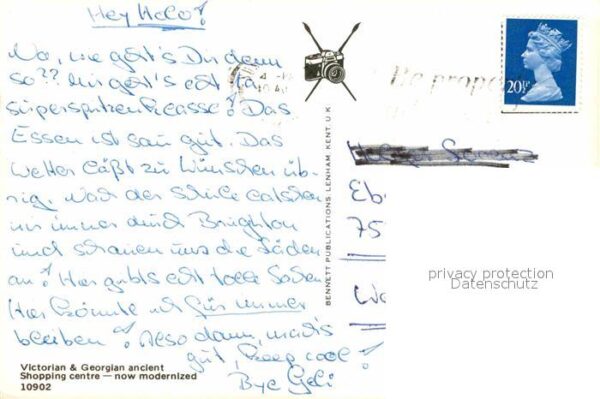 Hey Helo!
Na, wie geht's Dir denn
so?? Mir geht's echt ta
superspitzenklasse! Das
Essen ist sau gut. Das
Wetter läßt zu Wünschen üb-
rig. Nach der Schule latschen
wir immer durch Brighton
und schauen uns die Läden
an! Hier gibt's echt tolle Sachen
Hier könnte ich für immer
bleiben! Also dann, mach's
gut, keep cool!
Bye Geli
Victorian & Georgian ancient
Shopping centre — now modernized
10902
BENNETT PUBLICATIONS, LENHAM, KENT. U.K.
Be proper
20½P
Eb.
75
privacy protection
Datenschutz